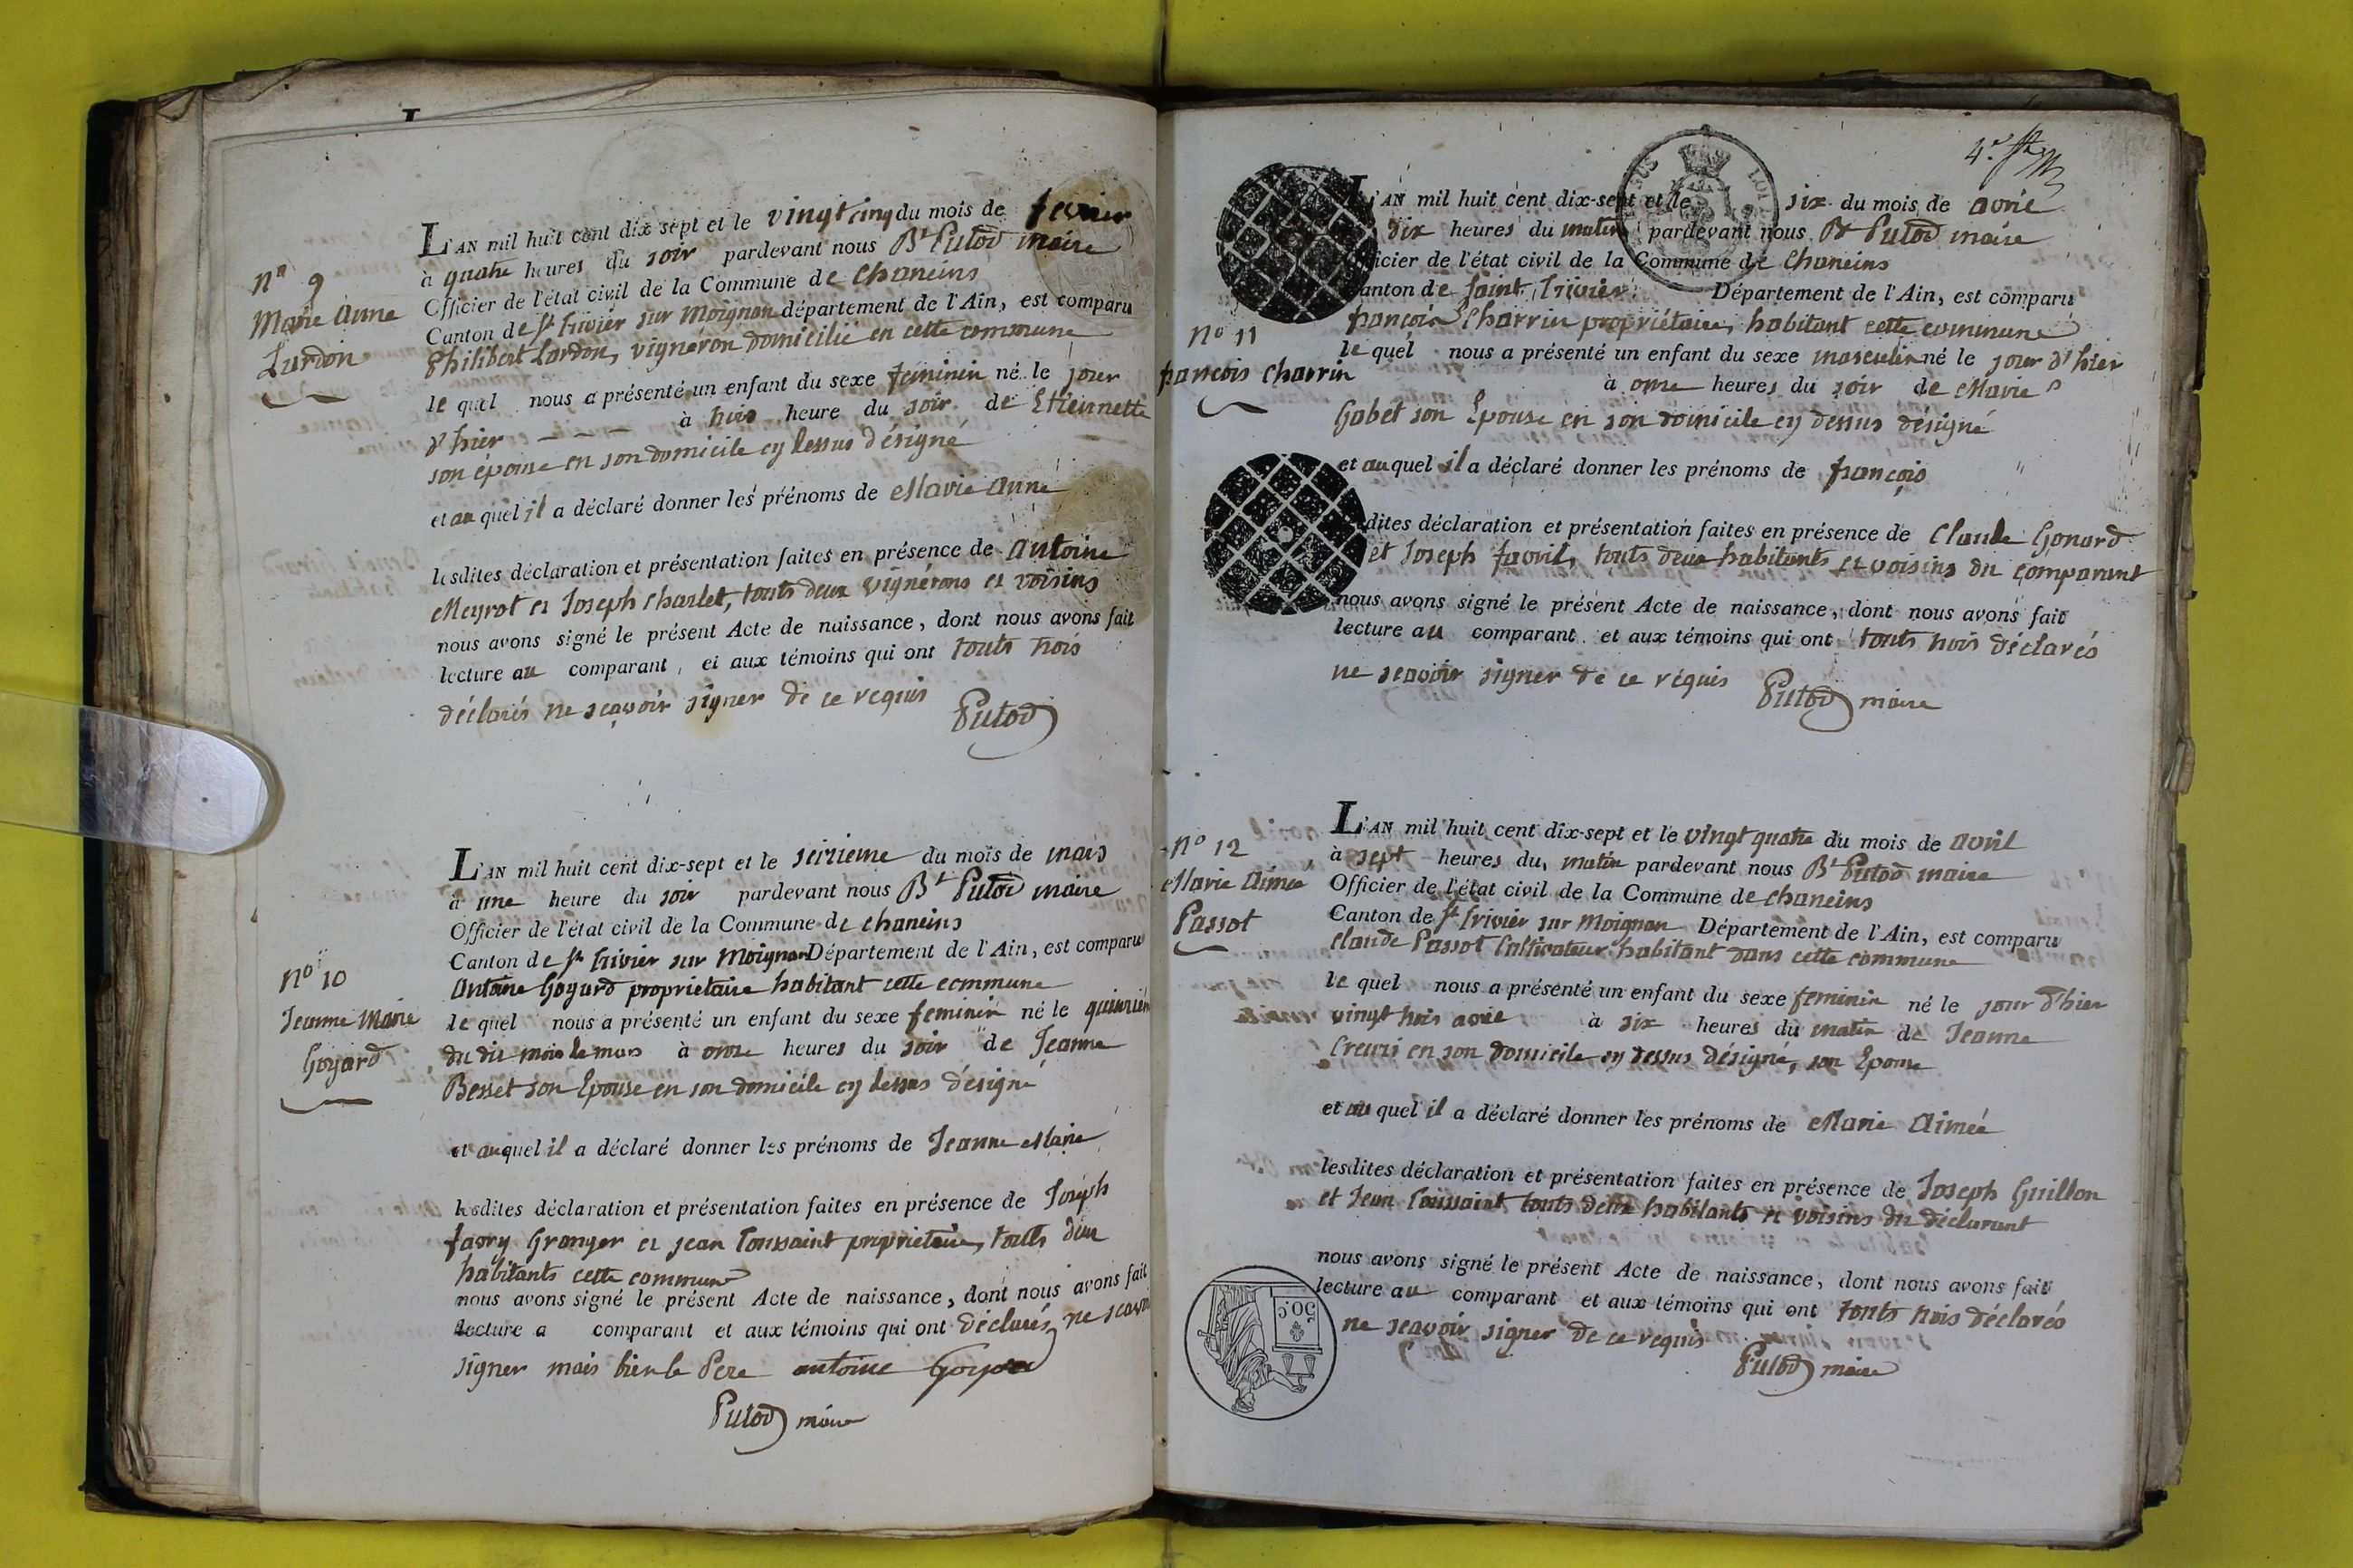 nº 9
Marie Anne
Lardon
L'AN mil huit cent dix-sept et le vingt cinq du mois de fevrier
à quatre heures du soir pardevant nous Bt Putod maire
Officier de l'état civil de la Commune de chaneins
Canton de St trivier sur Moignan département de l'Ain, est comparu
Philibert Lardon, vigneron domicilié en cette commune
le quel nous a présenté un enfant du sexe feminin né le jour
d'hier à heure du soir de Etiennette
son épouse en son domicile cy dessus désigné
et au quel il a déclaré donner les prénoms de Marie Anne
lesdites déclaration et présentation faites en présence de Antoine
Meyrot et Joseph Charlet, touts deux vignérons et voisins
nous avons signé le présent Acte de naissance, dont nous avons fait
lecture au comparant, et aux témoins qui ont touts trois
déclarés ne sçavoir signer de ce requis
Putod
nº 10
Jeanne Marie
Goyard
L'AN mil huit cent dix-sept et le seizieme du mois de mars
à une heure du soir pardevant nous Bt Putod maire
Officier de l'état civil de la Commune de chaneins
Canton de St trivier sur Moignan Département de l'Ain, est comparu
Antoine Goyard proprietaire habitant cette commune
le quel nous a présenté un enfant du sexe feminin né le quinzième
du dit mois de mars à onze heures du soir de Jeanne
Besset son Epouse en son domicile cy dessus désigné
et auquel il a déclaré donner les prénoms de Jeanne Marie
lesdites déclaration et présentation faites en présence de Joseph
favry Granger et jean Toussaint proprietaire, touts deux
habitants cette commune
nous avons signé le présent Acte de naissance, dont nous avons fait
lecture a comparant et aux témoins qui ont déclarés ne sçavoir
signer mais bien le Pere antoine Goyard
Putod maire
4e
L'AN mil huit cent dix-sept et le six du mois de avril
dix heures du matin pardevant nous Bt Putod maire
Officier de l'état civil de la Commune de Chaneins
Canton de Saint trivier Département de l'Ain, est comparu
nº 11
françois Charrin
françois Charrin propriétaire, habitant cette commune
le quel nous a présenté un enfant du sexe masculin né le jour d'hier
à onze heures du soir de Marie
Gobet son Epouse en son domicile cy dessus désigné
et auquel il a déclaré donner les prénoms de françois
lesdites déclaration et présentation faites en présence de Claude Gonard
et Joseph favril, touts deux habitants et voisins du comparant
nous avons signé le présent Acte de naissance, dont nous avons fait
lecture au comparant et aux témoins qui ont touts trois déclarés
ne sçavoir signer de ce réquis
Putod maire
nº 12
Marie Aimée
Passot
L'AN mil huit cent dix-sept et le vingt quatre du mois de avril
à sept heures du matin pardevant nous Bt Putod maire
Officier de l'état civil de la Commune de chaneins
Canton de St trivier sur Moignan Département de l'Ain, est comparu
claude Passot Cultivateur habitant dans cette commune
le quel nous a présenté un enfant du sexe feminin né le jour d'hier
vingt trois avril à six heures du matin de Jeanne
en son domicile cy dessus désigné, son Epouse
et au quel il a déclaré donner les prénoms de Marie Aimée
lesdites déclaration et présentation faites en présence de Joseph Guillon
et Jean Toussaint touts deux habitants et voisins du déclarant
nous avons signé le présent Acte de naissance, dont nous avons fait
lecture au comparant et aux témoins qui ont touts trois déclarés
ne sçavoir signer de ce requis
Putod maire
50 C.